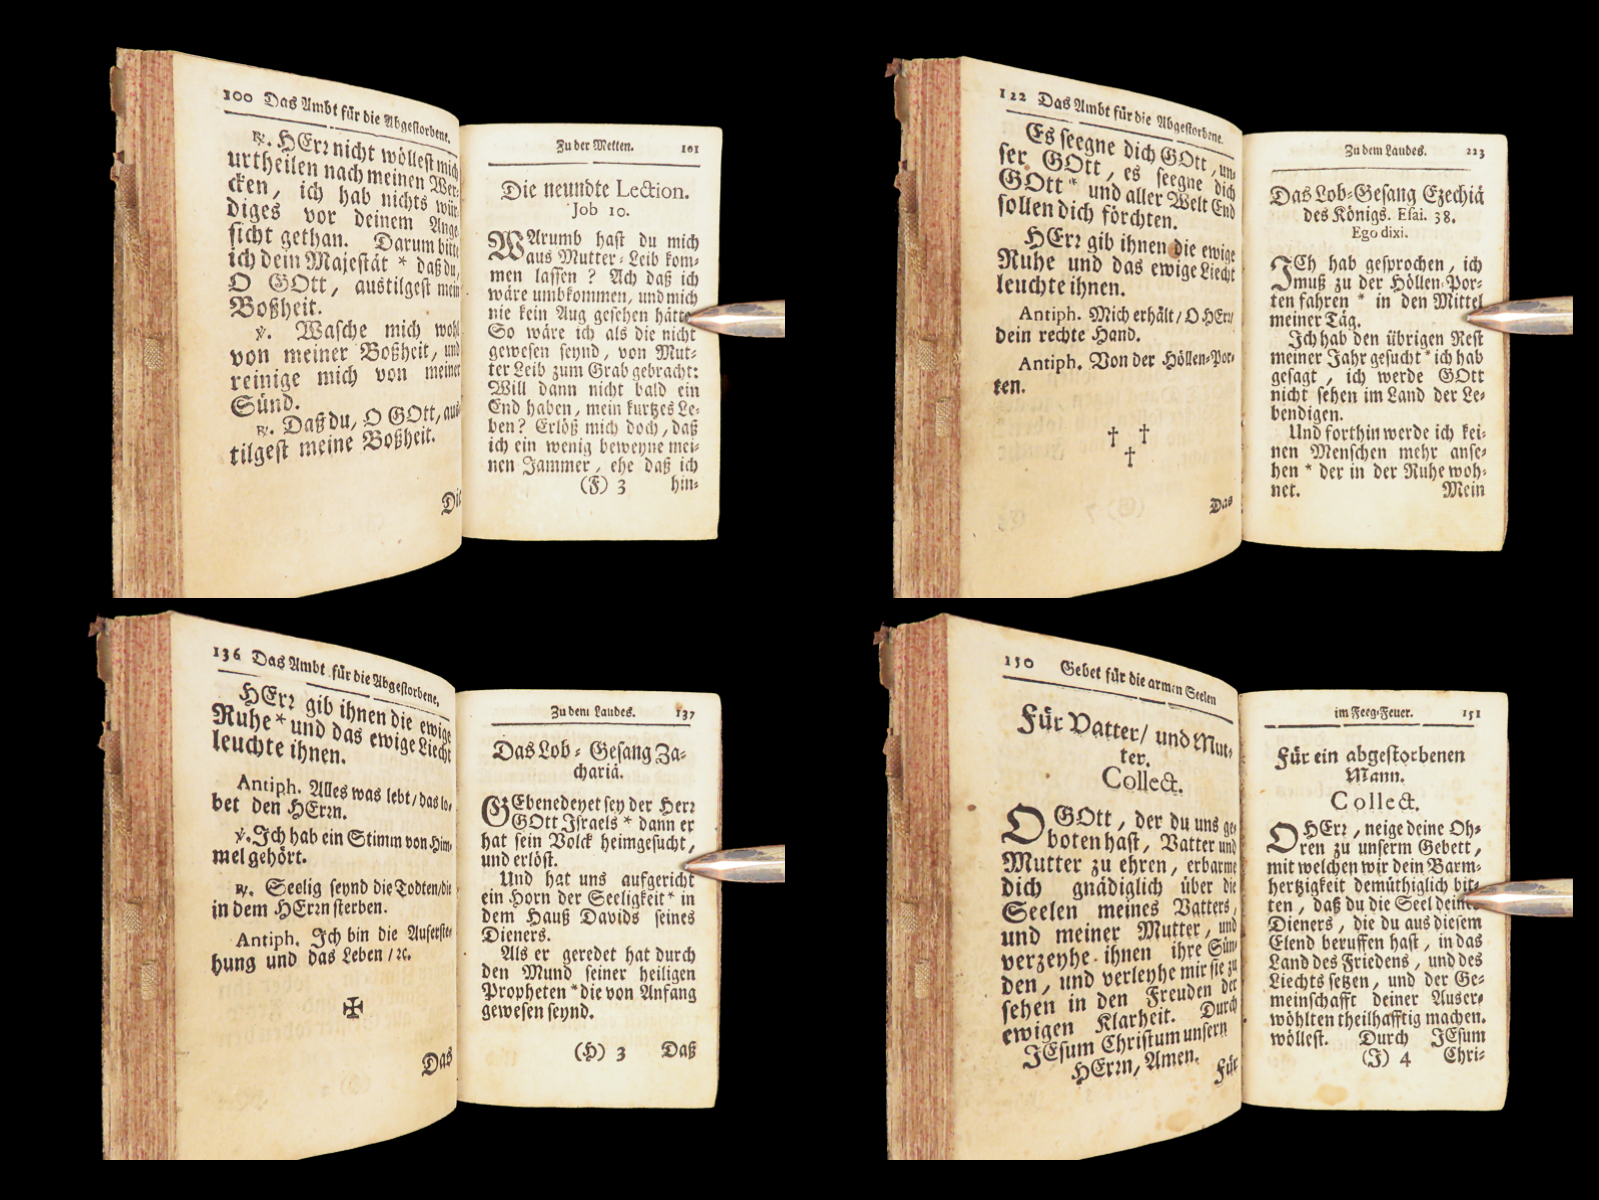 100 Das Ambt für die Abgestorbene.
℟. HErr nicht wöllest mich
urtheilen nach meinen Wer-
cken, ich hab nichts wür-
diges vor deinem Ange-
sicht gethan. Darum bitte
ich dein Majestät * daß du,
O GOtt, austilgest mein
Boßheit.
℣. Wasche mich wohl
von meiner Boßheit, und
reinige mich von meiner
Sünd.
℟. Daß du, O GOtt, aus-
tilgest meine Boßheit.
Die
Zu der Metten. 101
Die neundte Lection.
Job 10.
WArumb hast du mich
aus Mutter-Leib kom-
men lassen? Ach daß ich
wäre umbkommen, und mich
nie kein Aug gesehen hätte
So wäre ich als die nicht
gewesen seynd, von Mut-
ter Leib zum Grab gebracht:
Will dann nicht bald ein
End haben, mein kurtzes Le-
ben? Erlöß mich doch, daß
ich ein wenig beweyne mei-
nen Jammer, ehe daß ich
(F) 3 hin-
122 Das Ambt für die Abgestorbene.
Es seegne dich GOtt, un-
ser GOtt, es seegne dich
GOtt * und aller Welt End
sollen dich förchten.
HErr gib ihnen die ewige
Ruhe und das ewige Liecht
leuchte ihnen.
Antiph. Mich erhält / O HErr /
dein rechte Hand.
Antiph. Von der Höllen-Por-
ten.
† †
†
Das
Zu dem Laudes. 223
Das Lob-Gesang Ezechiä
des Königs. Esai. 38.
Ego dixi.
ICh hab gesprochen, ich
muß zu der Höllen-Por-
ten fahren * in den Mittel
meiner Täg.
Ich hab den übrigen Rest
meiner Jahr gesucht * ich hab
gesagt, ich werde GOtt
nicht sehen im Land der Le-
bendigen.
Und forthin werde ich kei-
nen Menschen mehr anse-
hen * der in der Ruhe woh-
net. Mein
136 Das Ambt für die Abgestorbene,
HErr gib ihnen die ewige
Ruhe * und das ewige Liecht
leuchte ihnen.
Antiph. Alles was lebt / das lo-
bet den HErrn.
℣. Ich hab ein Stimm von Him-
mel gehört.
℟. Seelig seynd die Todten / die
in dem HErrn sterben.
Antiph. Ich bin die Auferste-
hung und das Leben / ꝛc.
✠
Das
Zu dem Laudes. 137
Das Lob-Gesang Za-
chariä.
GEbenedeyet sey der Herr
GOtt Israels * dann er
hat sein Volck heimgesucht,
und erlöst.
Und hat uns aufgericht
ein Horn der Seeligkeit * in
dem Hauß Davids seines
Dieners.
Als er geredet hat durch
den Mund seiner heiligen
Propheten * die von Anfang
gewesen seynd.
(H) 3 Daß
150 Gebet für die armen Seelen
Für Vatter / und Mut-
ter.
Collect.
O GOtt, der du uns ge-
boten hast, Vatter und
Mutter zu ehren, erbarme
dich gnädiglich über die
Seelen meines Vatters,
und meiner Mutter, und
verzeyhe ihnen ihre Sün-
den, und verleyhe mir sie zu
sehen in den Freuden der
ewigen Klarheit. Durch
JEsum Christum unsern
HErrn, Amen.
Für
im Feeg-Feuer. 151
Für ein abgestorbenen
Mann.
Collect.
O HErr, neige deine Oh-
ren zu unserm Gebett,
mit welchen wir dein Barm-
hertzigkeit demüthiglich bit-
ten, daß du die Seel deines
Dieners, die du aus diesem
Elend beruffen hast, in das
Land des Friedens, und des
Liechts setzen, und der Ge-
meinschafft deiner Auser-
wöhlten theilhafftig machen.
wöllest. Durch JEsum
(J) 4 Chri-